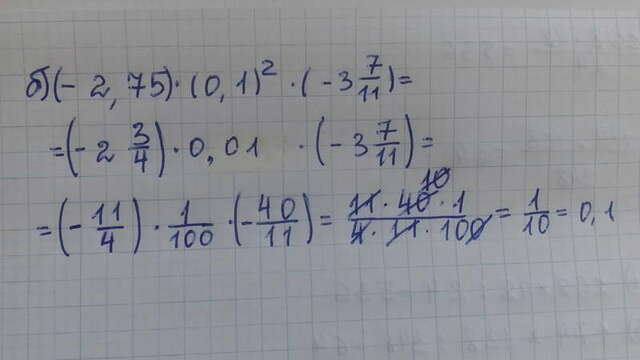 б)(- 2,75)·(0,1)²·(-3 7/11)=
=(-2 3/4)·0,01·(-3 7/11)=
=(-11/4)·1/100·(-40/11)= 11·40·1/4·11·100 10 = 1/10 = 0,1